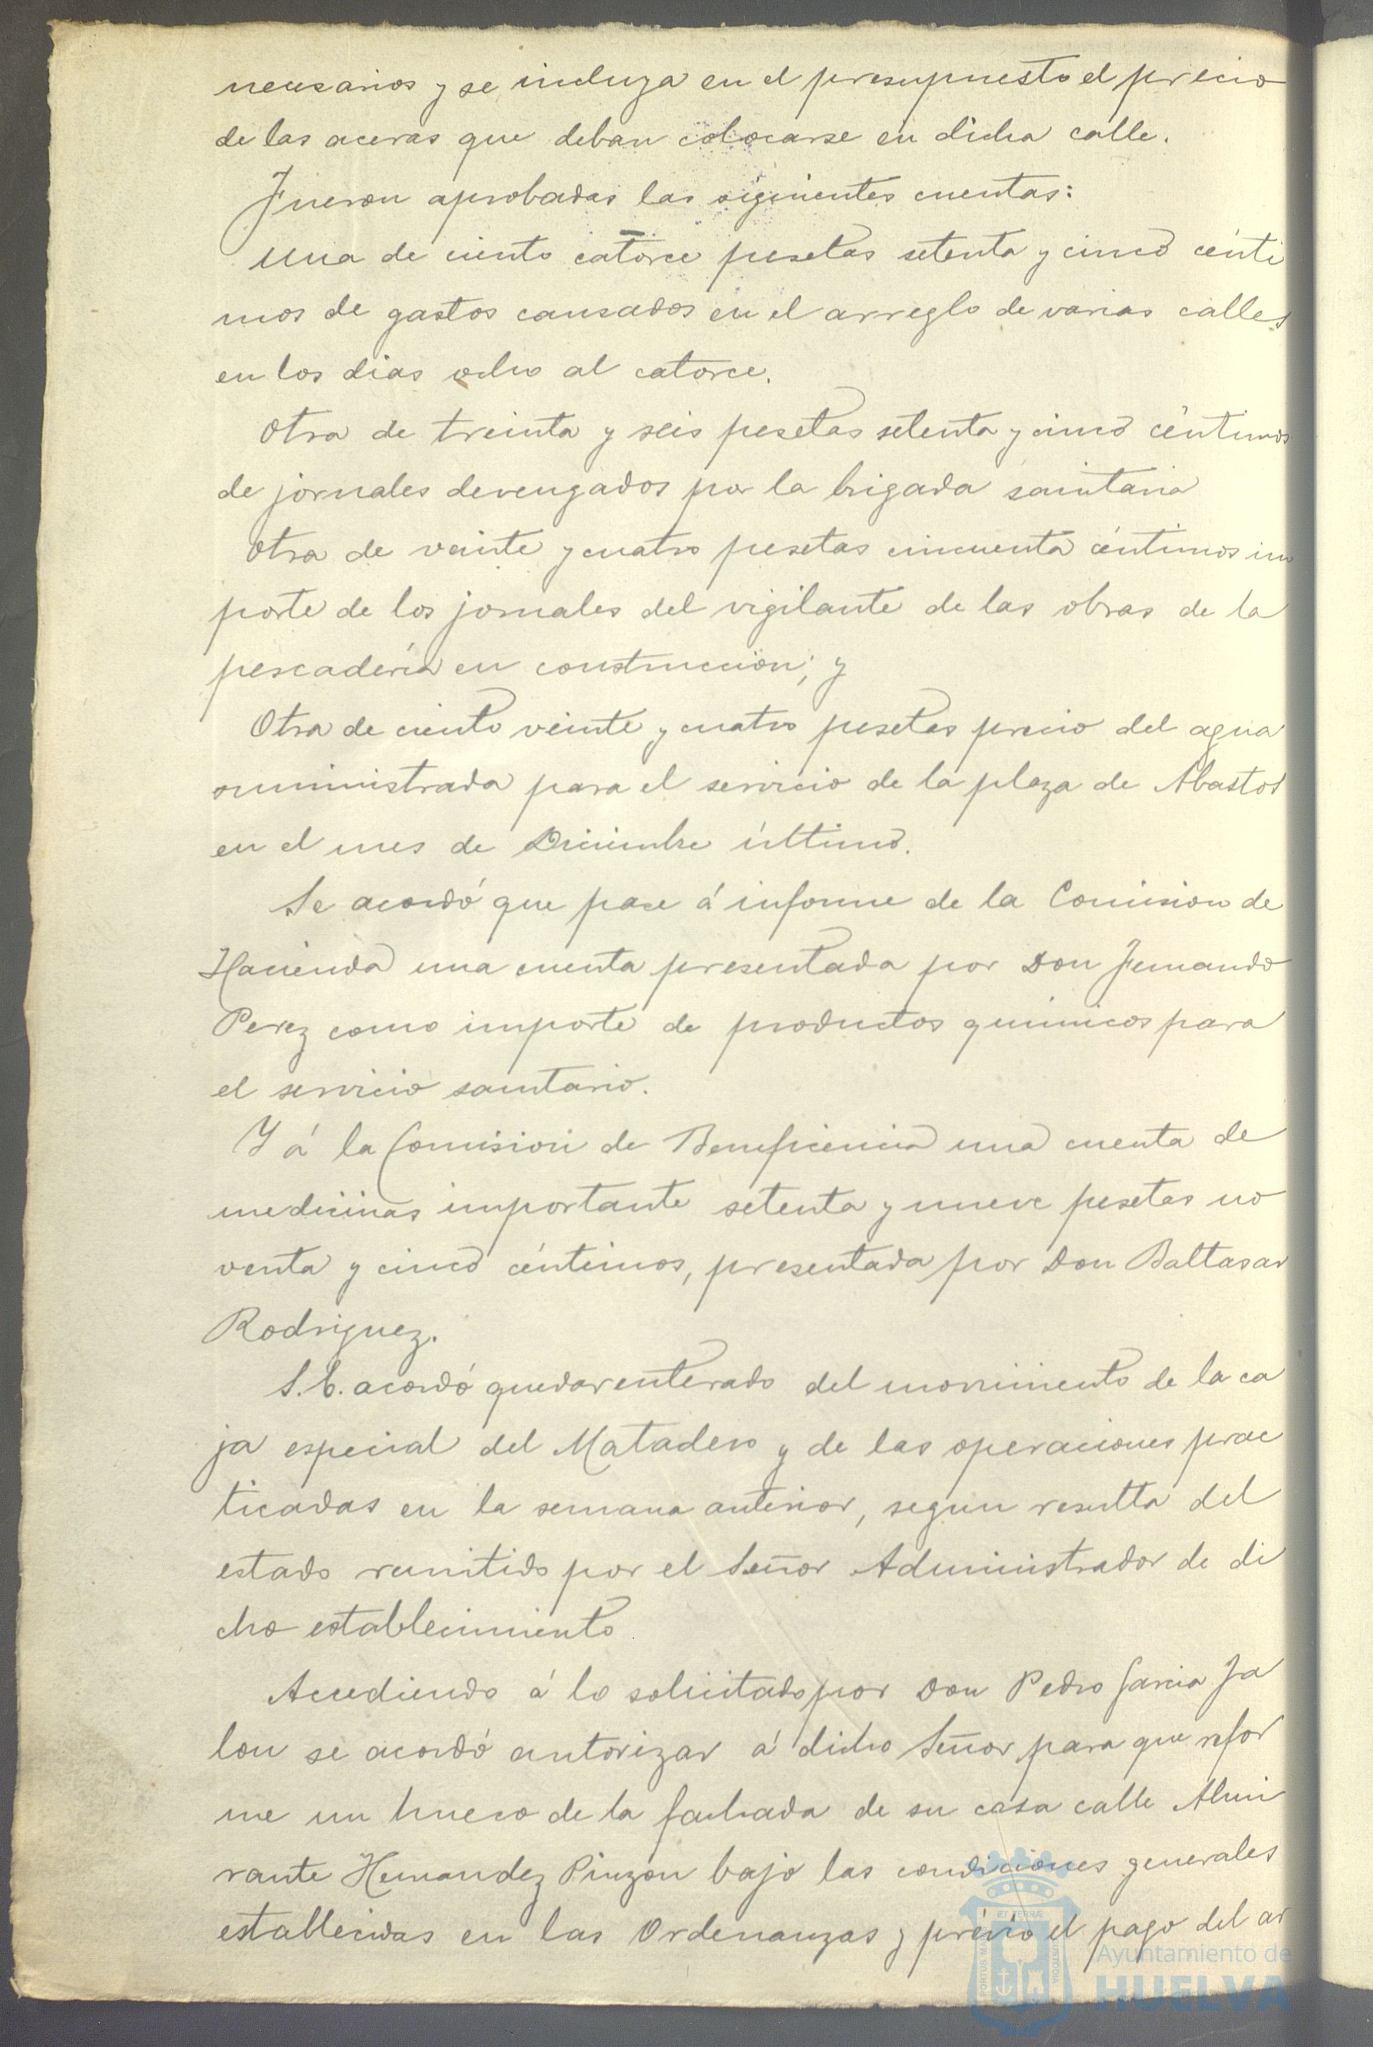 necesarios y se incluya en el presupuesto el precio
de las aceras que deban colocarse en dicha calle.
Fueron aprobadas las siguientes cuentas:
Una de ciento catorce pesetas setenta y cinco cénti
mos de gastos causados en el arreglo de varias calles
en los dias ocho al catorce.
Otra de treinta y seis pesetas setenta y cinco céntimos
de jornales devengados por la brigada sanitaria
Otra de veinte y cuatro pesetas cincuenta céntimos im
porte de los jornales del vigilante de las obras de la
pescadería en construccion; y
Otra de ciento veinte y cuatro pesetas precio del agua
suministrada para el servicio de la plaza de Abastos
en el mes de Diciembre último.
Se acordó que pase á informe de la Comision de
Hacienda una cuenta presentada por Don Fernando
Perez como importe de productos químicos para
el servicio sanitario.
Y á la Comision de Beneficencia una cuenta de
medicinas importante setenta y nueve pesetas no
venta y cinco céntimos, presentada por Don Baltasar
Rodriguez.
S.E. acordó quedar enterado del movimiento de la ca
ja especial del Matadero y de las operaciones prac
ticadas en la semana anterior, segun resulta del
estado remitido por el Señor Administrador de di
cho establecimiento
Accediendo á lo solicitado por Don Pedro Garcia Ja
lon se acordó autorizar á dicho Señor para que refor
me un hueco de la fachada de su casa calle Almi
rante Hernandez Pinzon bajo las condiciones generales
establecidas en las Ordenanzas y prévio el pago del ar
Ayuntamiento de
HUELVA